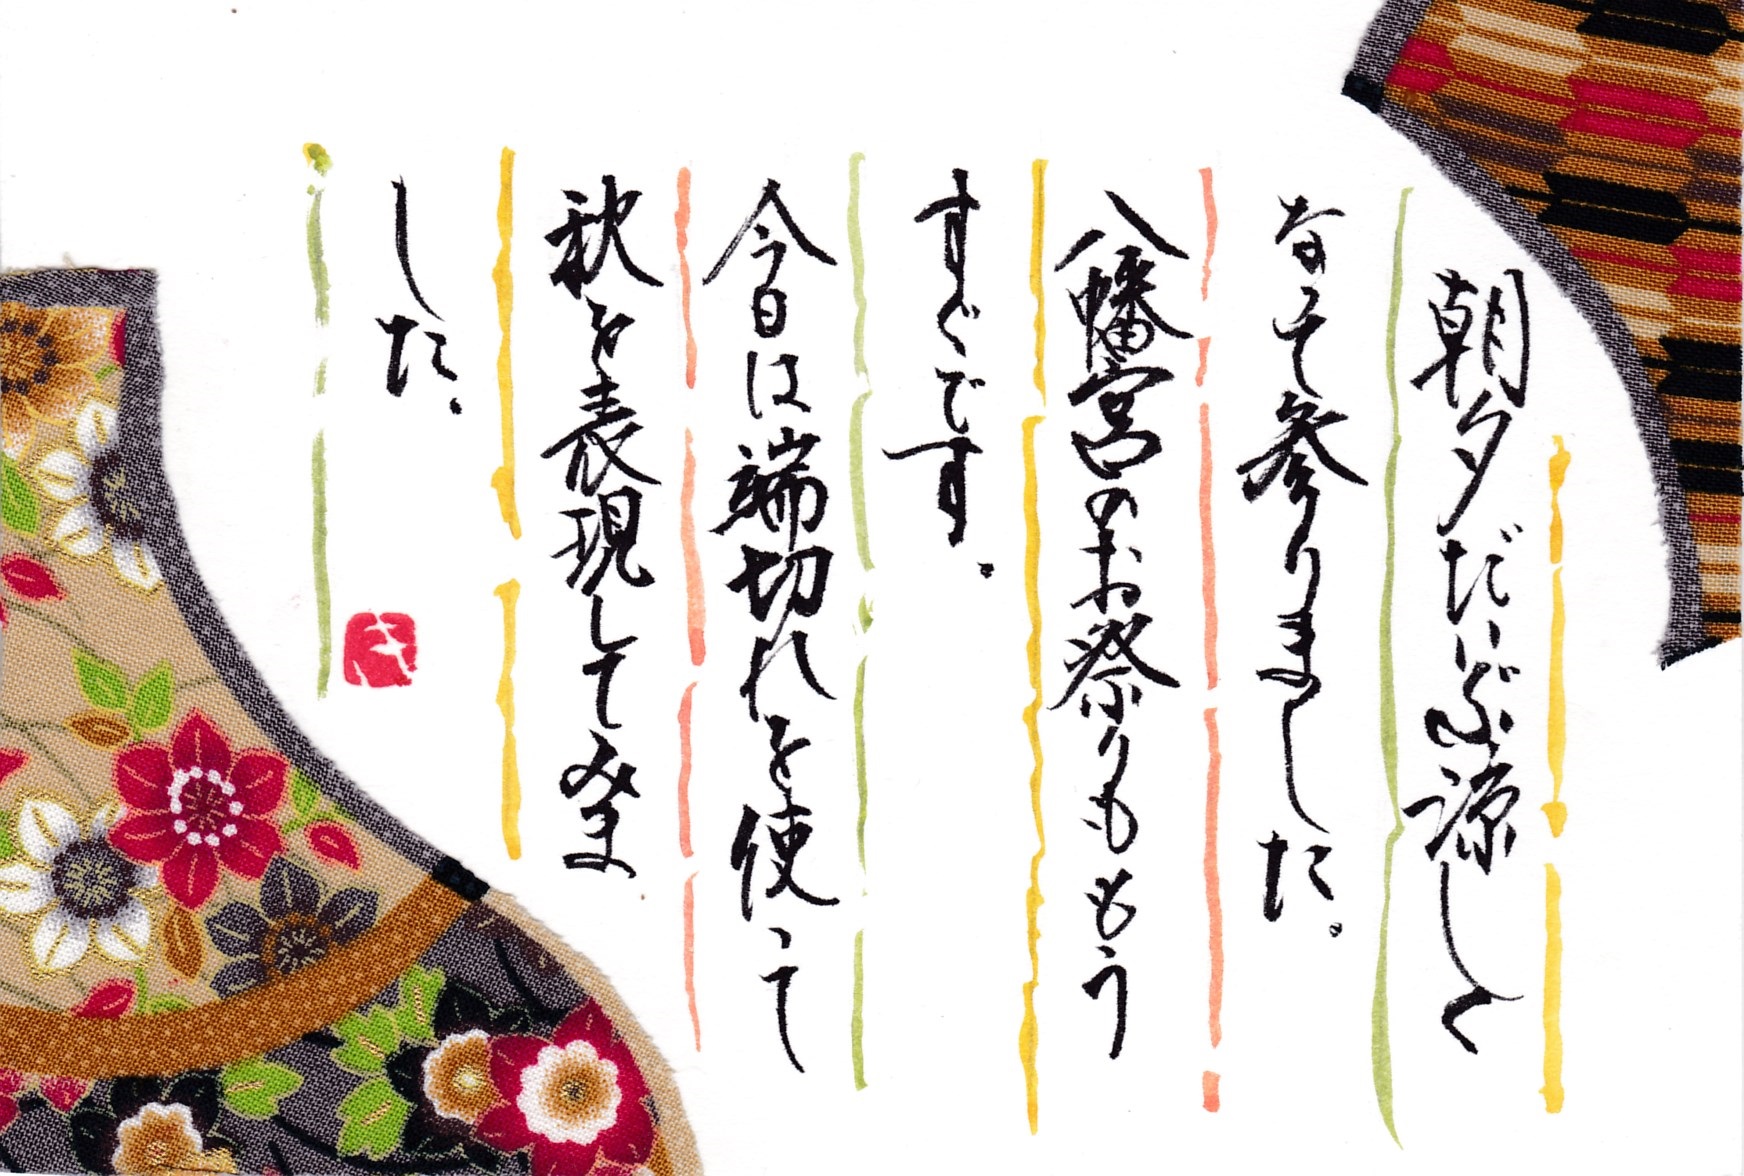 朝夕だいぶ涼しく
なって参りました。
八幡宮のお祭りももう
すぐです。
今日は端切れを使って
秋を表現してみま
した。